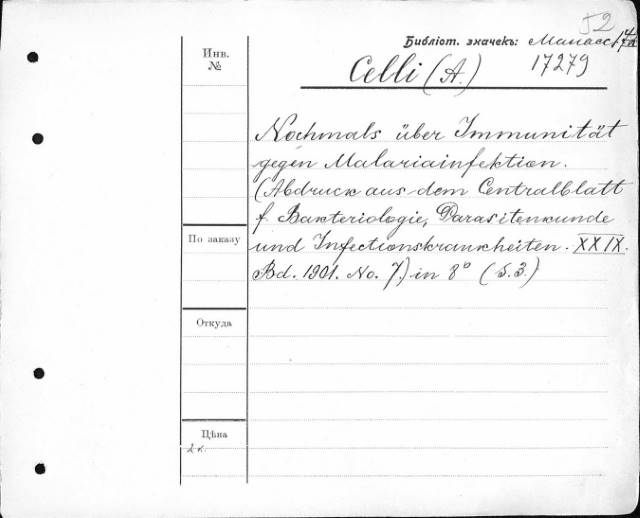 52
Библіот. значекъ: Манасс
17279
Инв. №
Celli (A.)
Nochmals über Immunität
gegen Malariainfektion.
(Abdruck aus dem Centralblatt
f. Bakteriologie, Parasitenkunde
und Infectionskrankheiten. XXIX.
Bd. 1901. No. 7.) in 8° (S. 3.)
По заказу
Откуда
Цѣна
2 к.